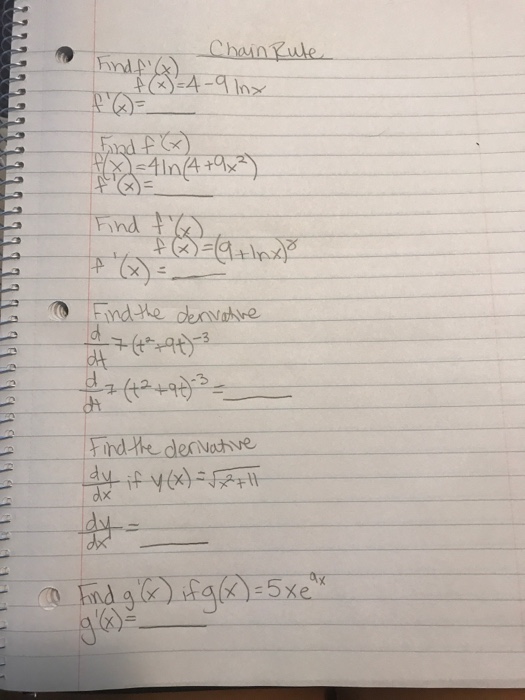 Chain Rule
Find f'(x)
f(x)=4-9 lnx
f'(x)=
Find f'(x)
f(x)=4ln(4+9x²)
f'(x)=
Find f'(x)
f(x)=(9+lnx)⁸
f'(x)=
Find the derivative
d/dt 7(t²+9t)⁻³
d/dt 7(t²+9t)⁻³=
Find the derivative
dy/dx if y(x)=√x²+11
dy/dx =
Find g'(x) if g(x)=5xe⁹ˣ
g'(x)=